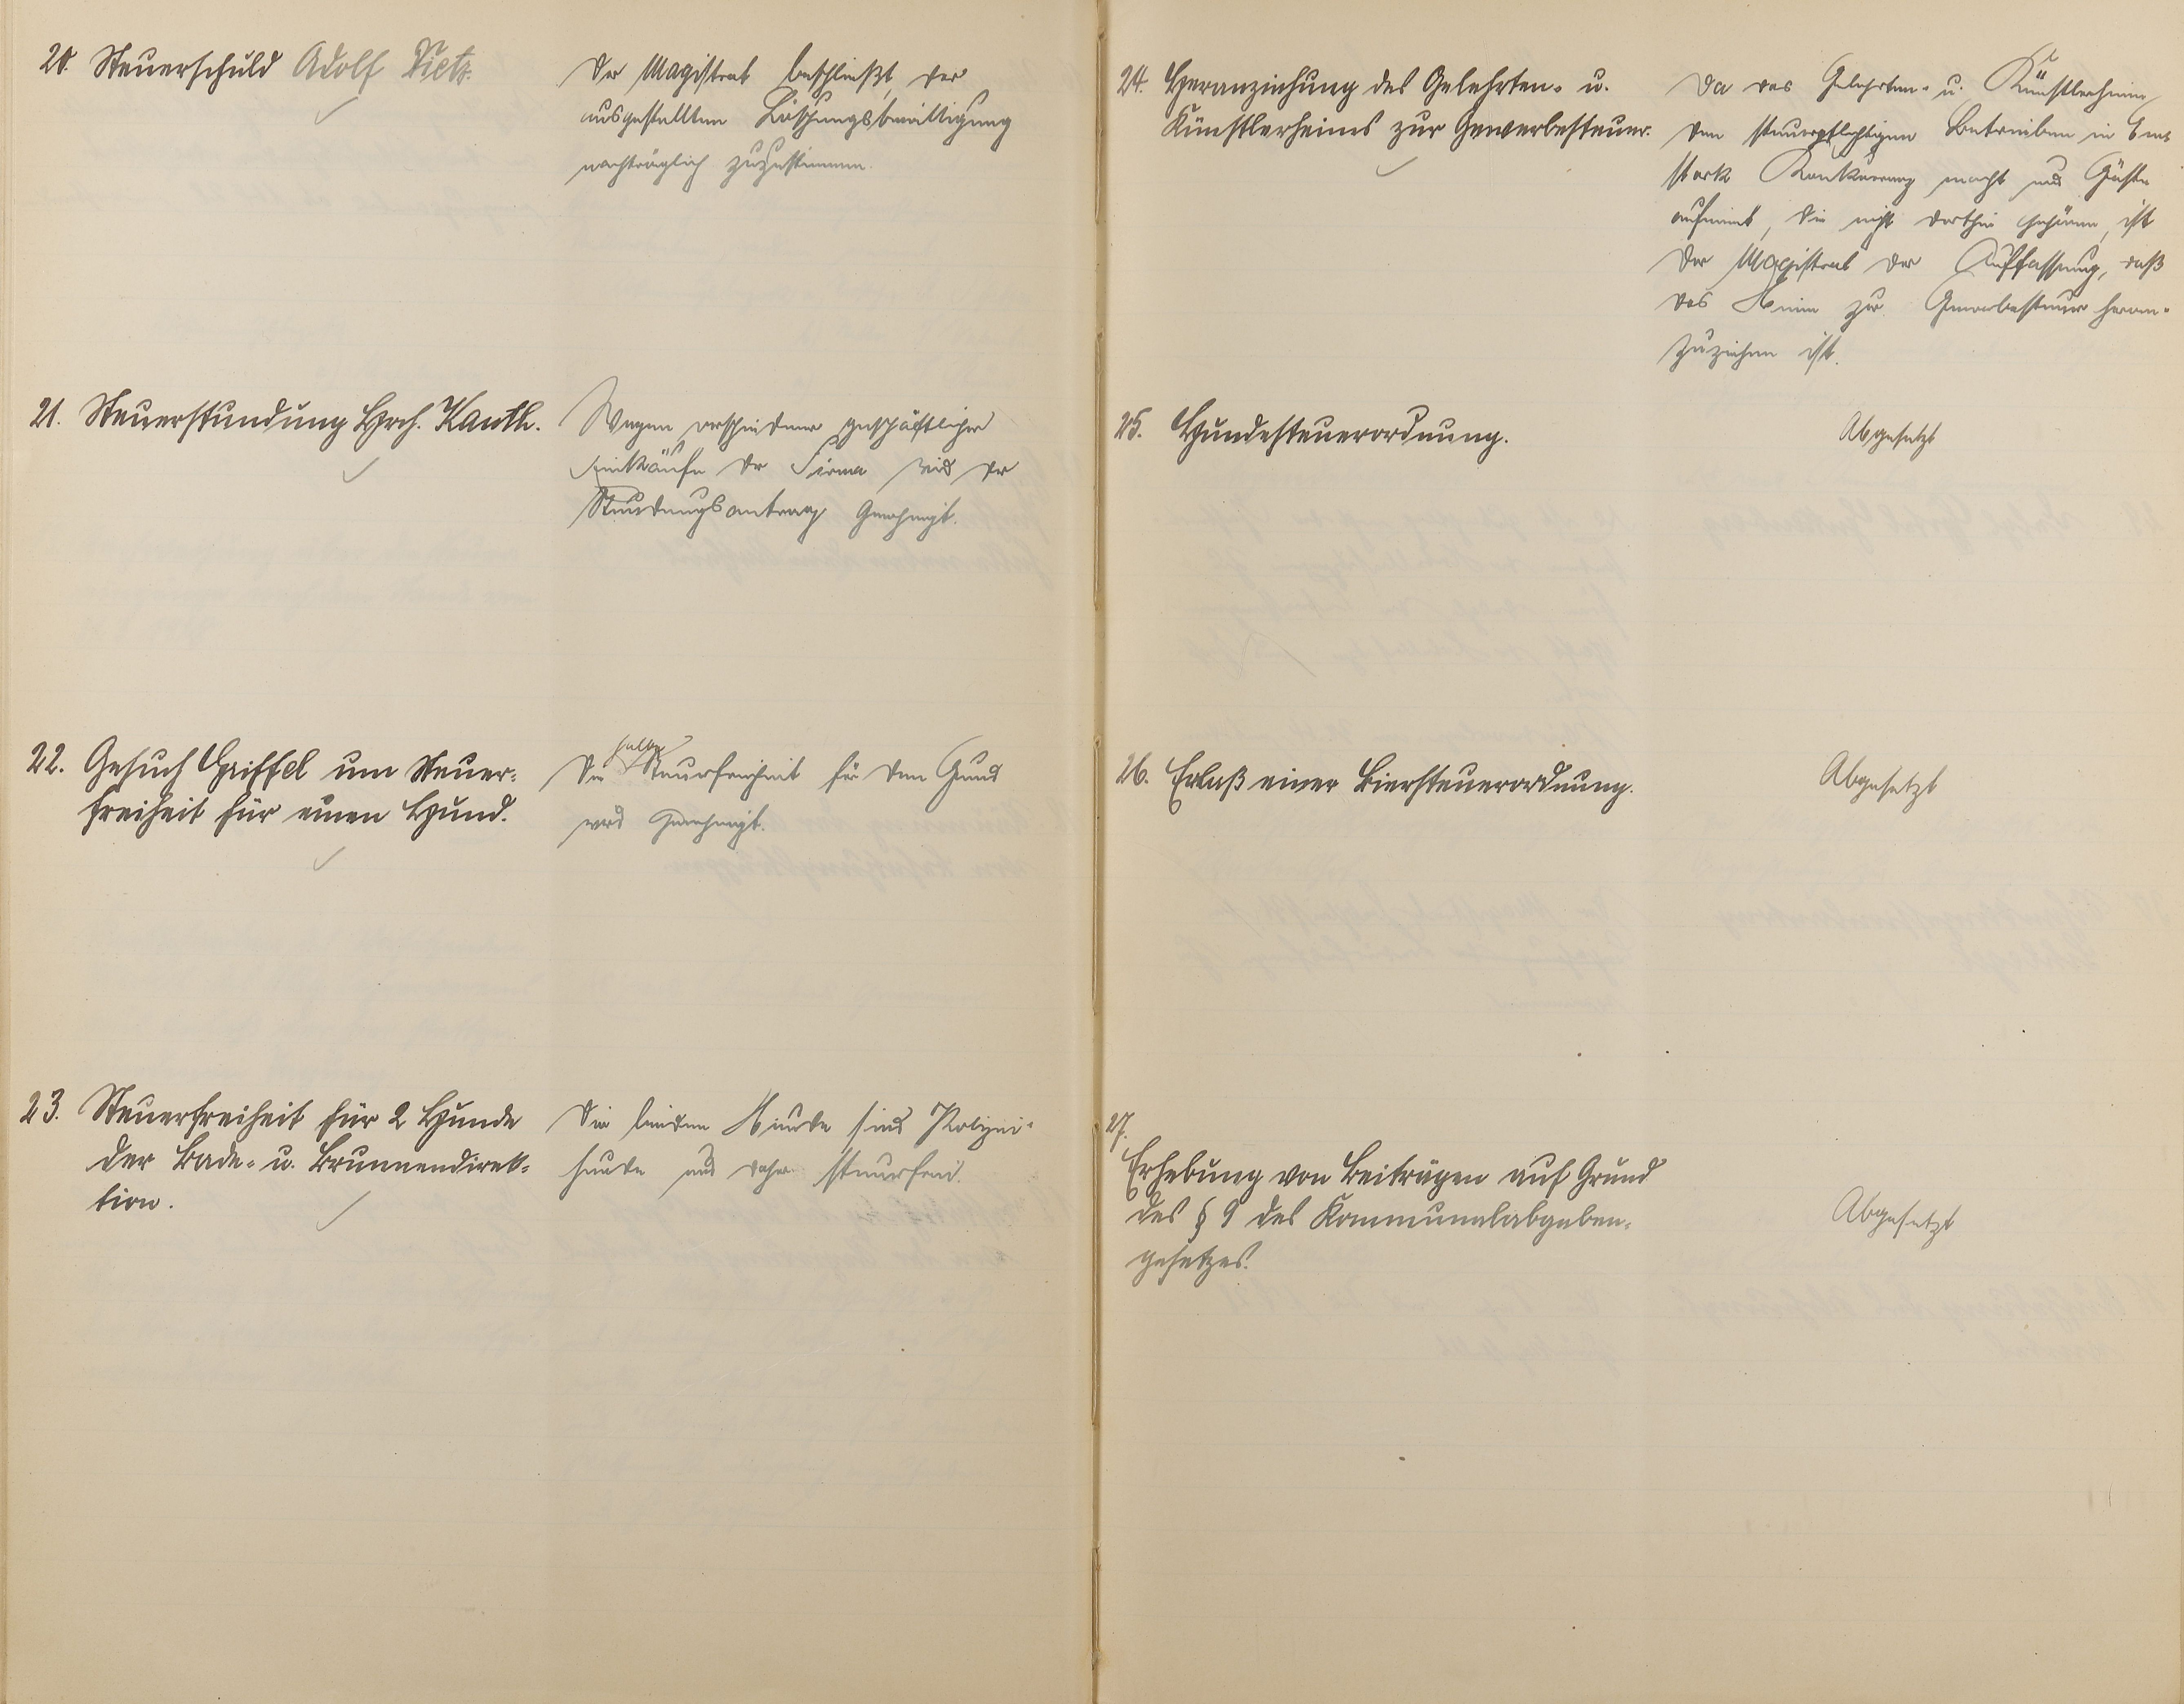 20. Steuerschuld Adolf Dietz.
Der Magistrat beschließt, der
ausgestellten Löschungsbewilligung
nachträglich zuzustimmen.
21. Steuerstundung Hrch. Kauth.
Wegen verschiedener geschäftlicher
Einkäufe der Firma wird der
Stundungsantrag genehmigt.
22. Gesuch Griffel um Steuer-
freiheit für einen Hund.
Die halbe Steuerfreiheit für den Hund
wird genehmigt.
23. Steuerfreiheit für 2 Hunde
der Bade- u. Brunnendirek-
tion.
Die beiden Hunde sind Polizei-
hunde und daher steuerfrei.
24. Heranziehung des Gelehrten- u.
Künstlerheims zur Gewerbesteuer.
Da das Gelehrten- u. Künstlerheim
den steuerpflichtigen Betrieben in Ems
stark Konkurrenz macht und Gäste
aufnimt, die nicht dorthin gehören, ist
der Magistrat der Auffassung, daß
das Heim zur Gewerbesteuer heran-
zuziehen ist.
25. Hundesteuerordnung.
Abgesetzt
26. Erlaß einer Biersteuerordnung.
Abgesetzt
27.
Erhebung von Beiträgen auf Grund
des § 9 des Kommunalabgaben-
gesetzes.
Abgesetzt